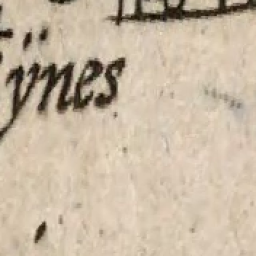 ÿnes